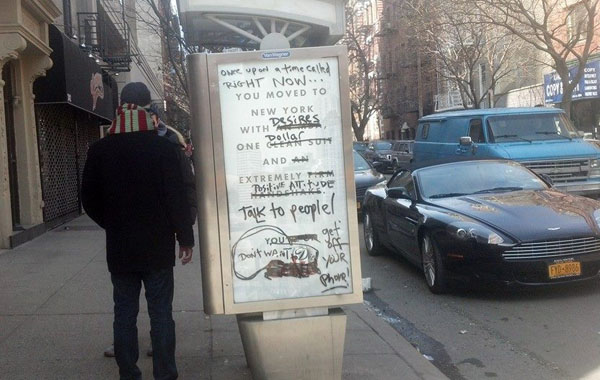 once upon a time called
RIGHT NOW...
YOU MOVED TO
NEW YORK
WITH DESIRES
Dollar
ONE CLEAN SUIT
AND AN
EXTREMELY FIRM
Positive Attitude
HANDSHAKE.
Talk to people!
YOU
DON'T WANT
get
off
YOUR
Phone!
COPY